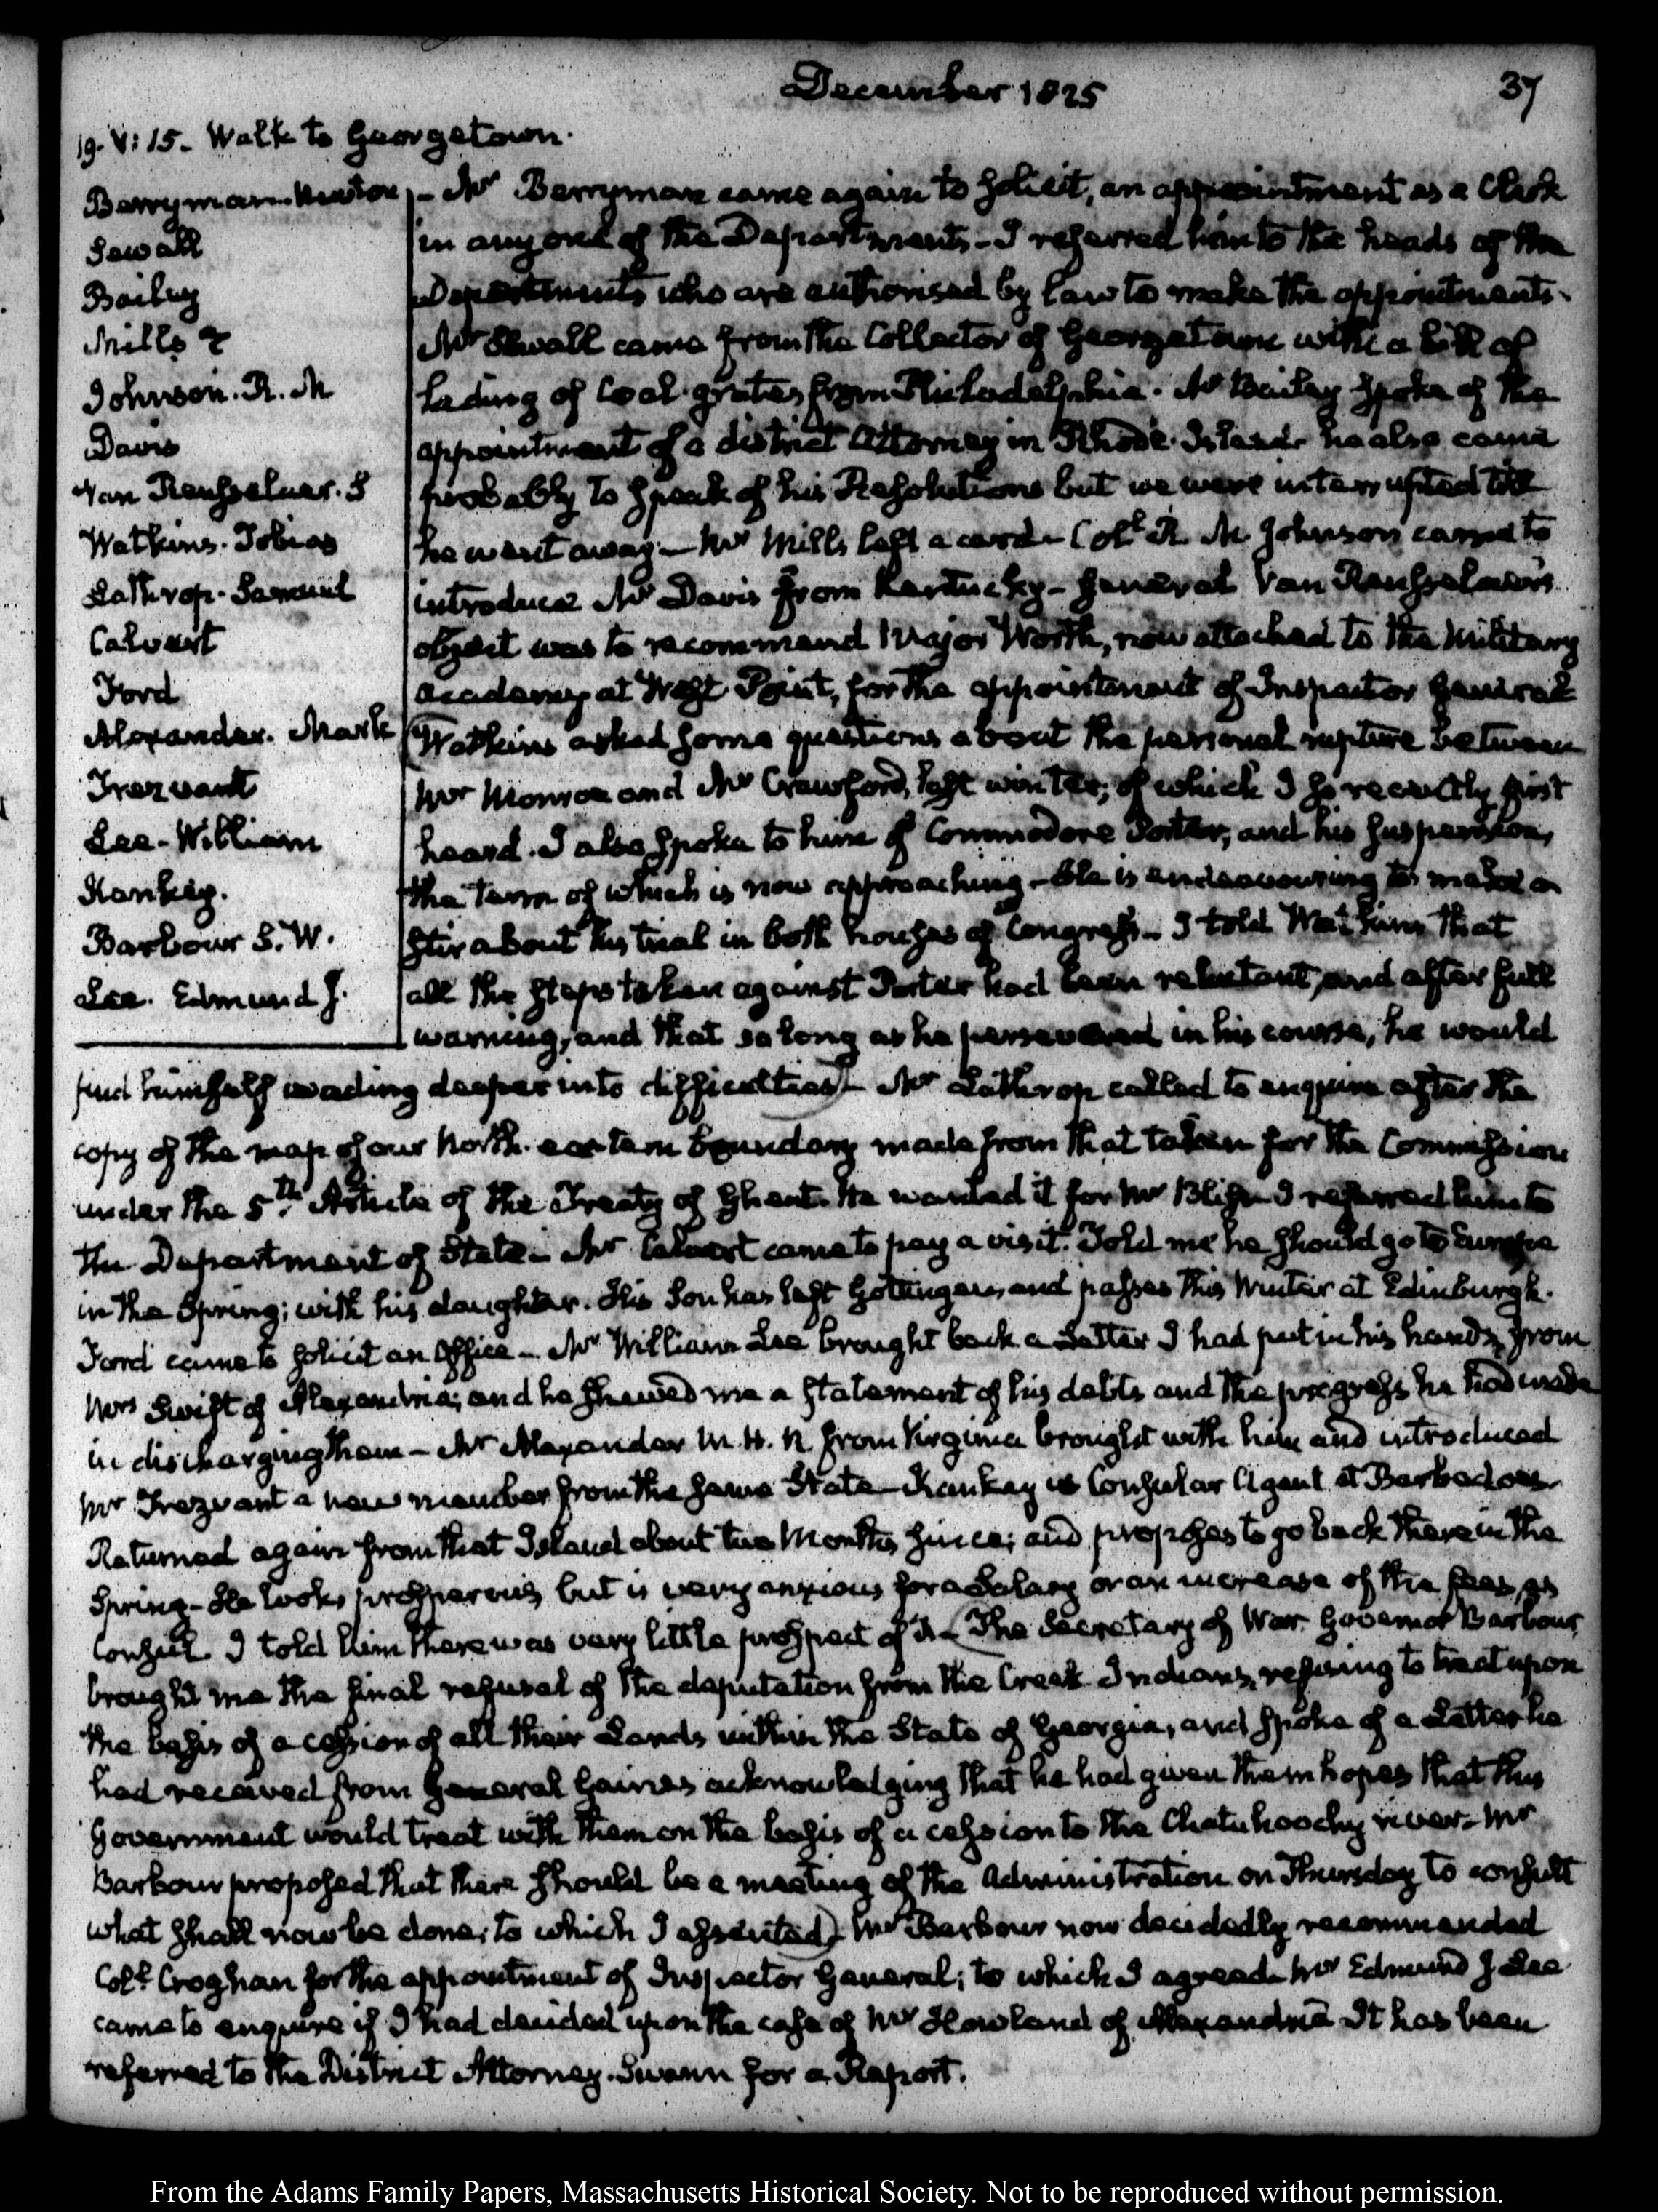 December 1825
37
19. V:15. Walk to Georgetown.
Berryman. Newton
Sewall
Bailey
Mills &
Johnson. R. M
Davis
Van Rensselaer. S
Watkins. Tobias
Lathrop. Samuel
Calvert
Ford
Alexander. Mark
Trezvant
Lee. William
Kankey.
Barbour S. W.
Lee. Edmund J.
Mr Berryman came again to solicit, an appointment as a Clerk
in any one of the Departments. I referred him to the heads of the
Departments who are authorised by law to make the appointments.
Mr Sewall came from the Collector of Georgetown with a bill of
lading of Coal-grates from Philadelphia. Mr Bailey spoke of the
appointment of a district Attorney in Rhode-Island. he also came
probably to speak of his Resolutions but we were interrupted till
he went away. Mr Mills left a card. Coll. R. M. Johnson came to
introduce Mr Davis from Kentucky. General Van Rensselaer's
object was to recommend Major Worth, now attached to the Military
academy at West-Point, for the appointment of Inspector General
Watkins asked some questions about the personal rupture between
Mr Monroe and Mr Crawford, last winter; of which I so recently first
heard. I also spoke to him of Commodore Porter, and his suspension,
the term of which is now approaching. He is endeavouring to make a
stir about his trial in both houses of Congress. I told Watkins that
all the steps taken against Porter had been reluctant, and after full
warning, and that so long as he persevered in his course, he would
find himself wading deeper into difficulties. Mr Lathrop called to enquire after the
copy of the map of our North-eastern boundary made from that taken for the Commission
under the 5th. Article of the Treaty of Ghent. He wanted it for Mr Bliss. I referred him to
the Department of State. Mr Calvert came to pay a visit. Told me he should go to Europe
in the Spring; with his daughter. His Son has left Gottingen, and passes this Winter at Edinburgh.
Ford came to solicit an Office. Mr William Lee brought back a Letter I had put in his hands, from
Mrs Swift of Alexandria; and he shewed me a statement of his debts and the progress he had made
in discharging them. Mr Alexander M. H. R. from Virginia brought with him and introduced
Mr Trezvant a new member from the same State. Kankey is Consular Agent at Barbadoes.
Returned again from that Island about two Months since; and proposes to go back there in the
Spring. He looks prosperous, but is very anxious for a Salary or an increase of the fees, as
Consul. I told him there was very little prospect of it. The Secretary of War. Governor Barbour,
brought me the final refusal of the deputation from the Creek Indians, refusing to treat upon
the basis of a cession of all their Lands within the State of Georgia, and spoke of a Letter he
had received from General Gaines acknowledging that he had given them hopes that this
Government would treat with them on the basis of a cession to the Chatahoochy river. Mr
Barbour proposed that there should be a meeting of the Administration on Thursday to consult
what shall now be done; to which I assented. Mr Barbour now decidedly recommended
Coll. Croghan for the appointment of Inspector General; to which I agreed. Mr Edmund J Lee
came to enquire if I had decided upon the case of Mr Howland of Alexandria. It has been
referred to the District Attorney. Swann for a Report.
From the Adams Family Papers, Massachusetts Historical Society. Not to be reproduced without permission.